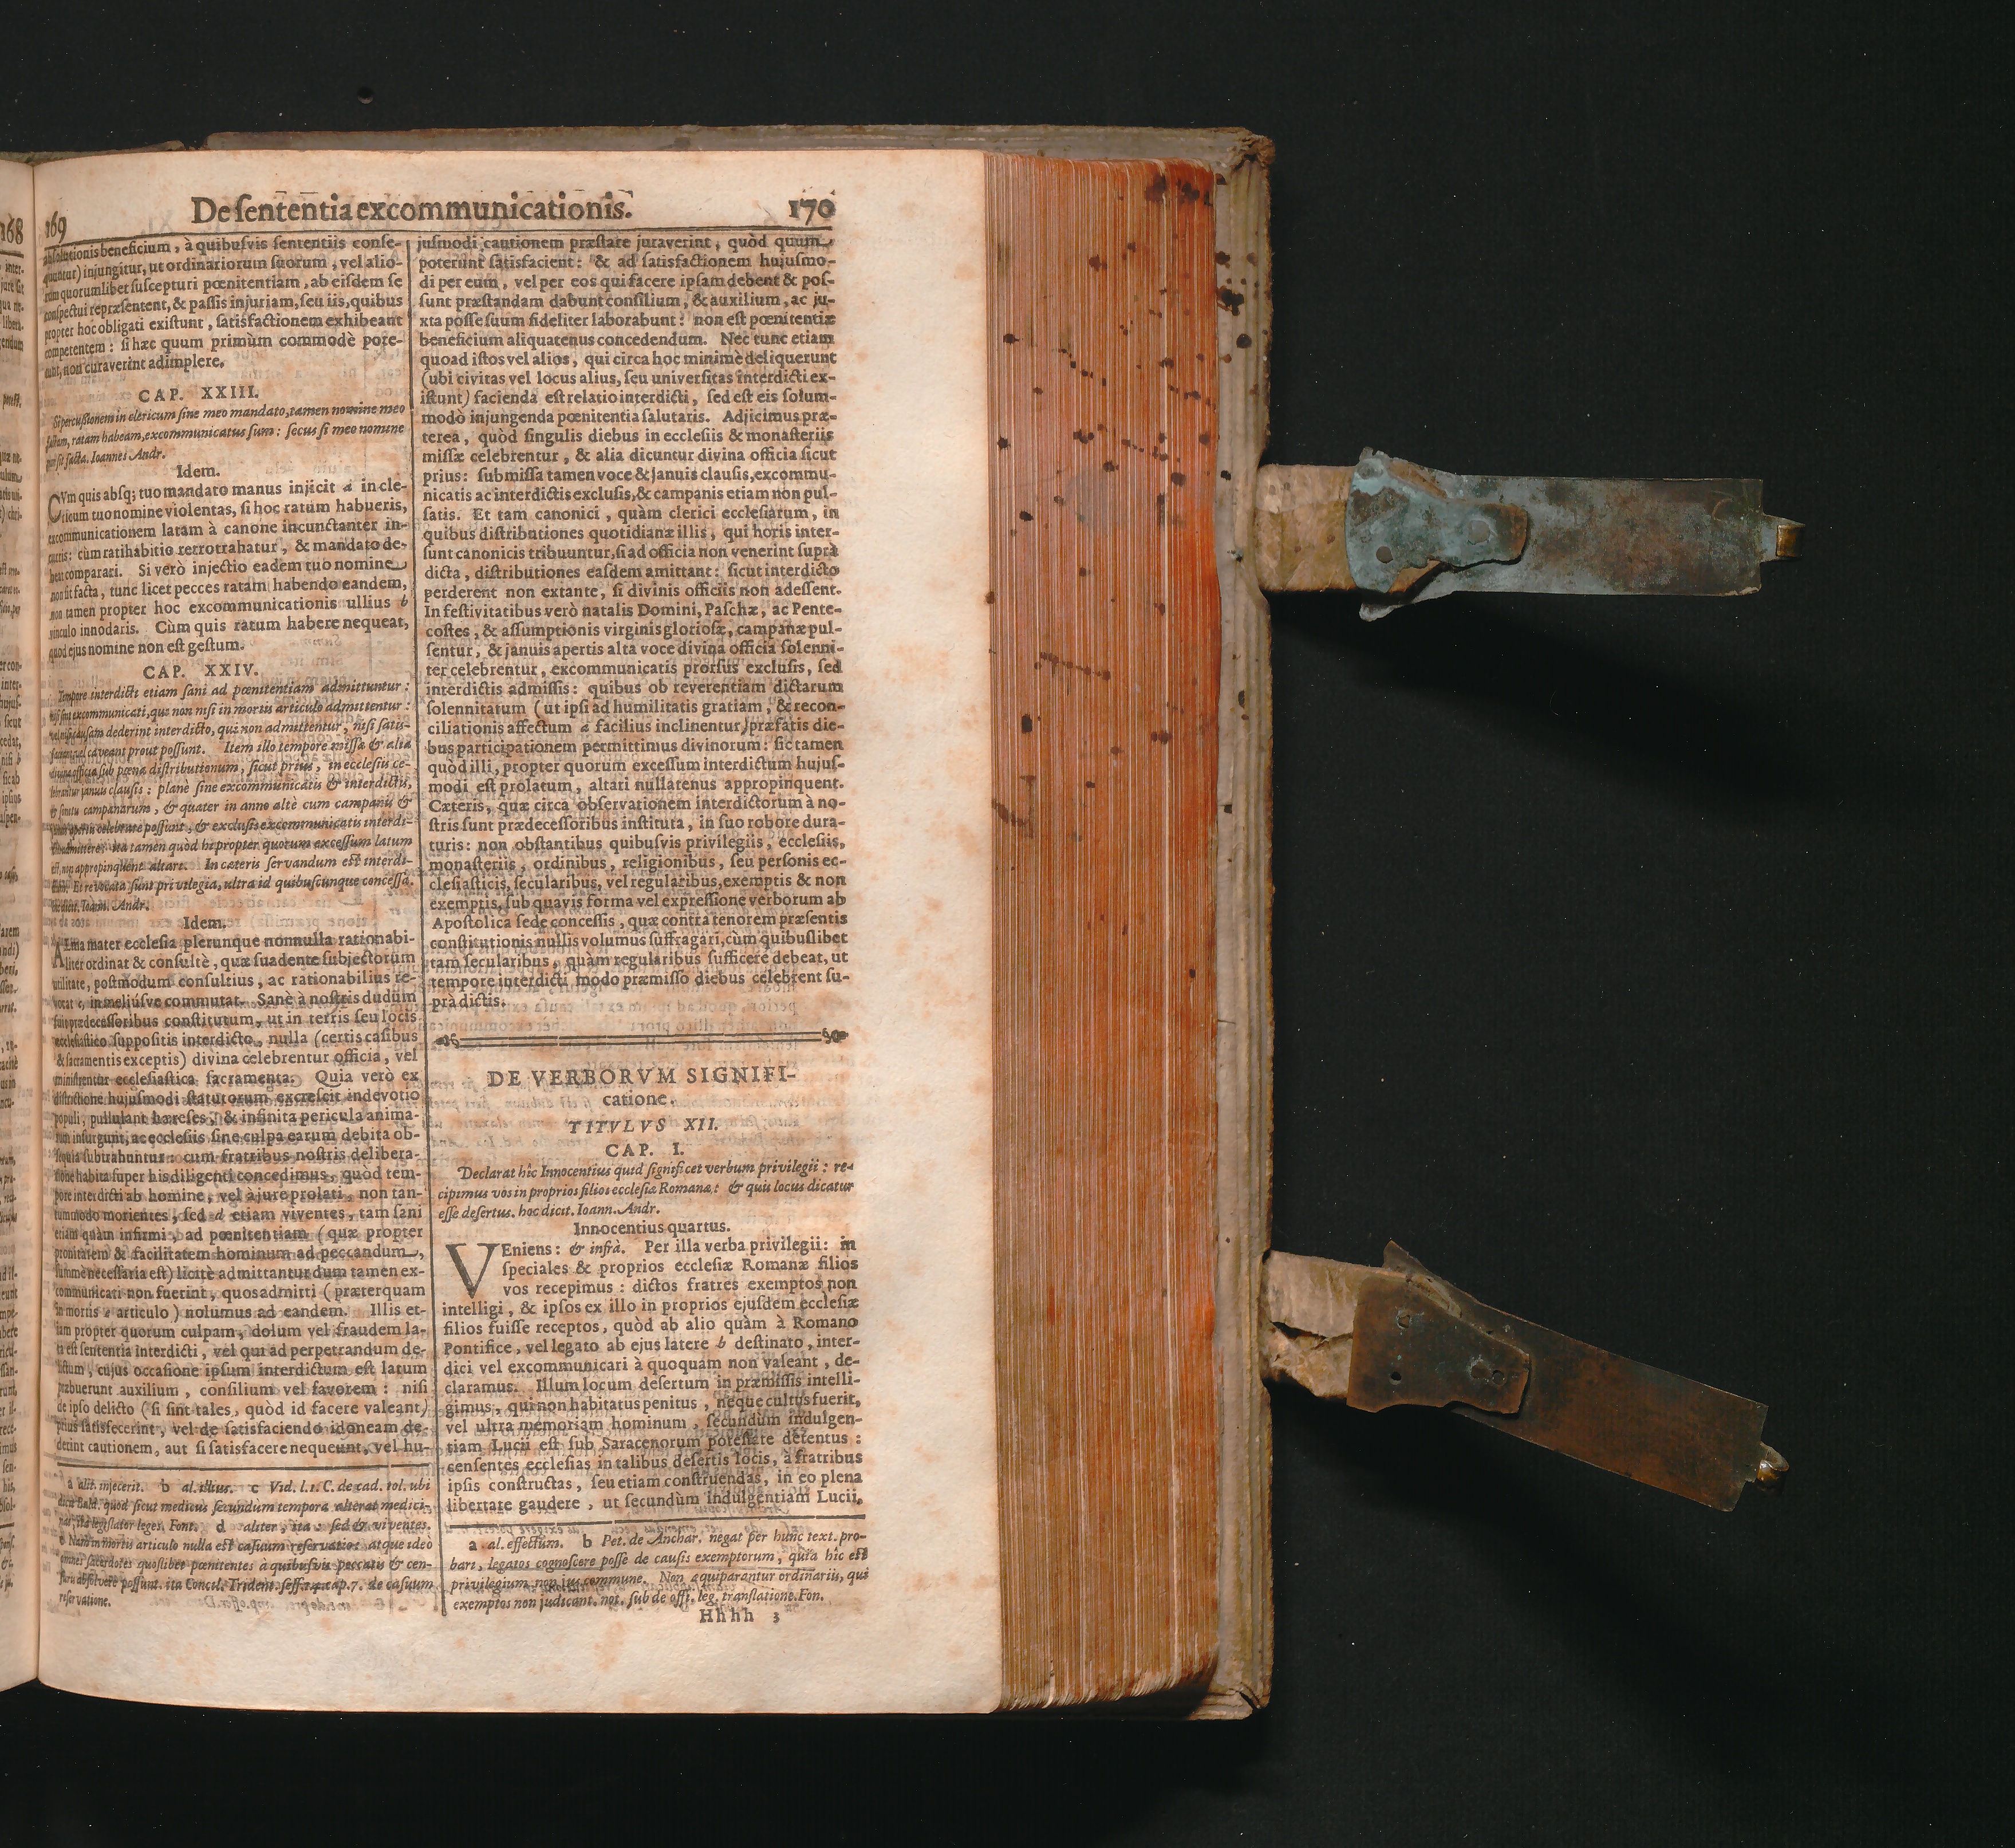 169 De sententia excommunicationis. 170
absolutionis beneficium, à quibusvis sententiis conse-
quuntur) injungitur, ut ordinariorum suorum, vel alio-
rum quorumlibet suscepturi pœnitentiam, ab eisdem se
conspectui repræsentent, & passis injuriam, seu iis, quibus
propter hoc obligati existunt, satisfactionem exhibeant
competentem: si hæc quum primùm commodè pote-
runt, non curaverint adimplere.
CAP. XXIII.
Si percussionem in clericum sine meo mandato, tamen nomine meo
factam, ratam habeam, excommunicatus sum: secus si meo nomine
non sit facta. Ioannes Andr.
Idem.
CVm quis absq; tuo mandato manus injicit a in cle-
ricum tuo nomine violentas, si hoc ratum habueris,
excommunicationem latam à canone incunctanter in-
curris: cùm ratihabitio retrotrahatur, & mandato de-
beat comparari. Si verò injectio eadem tuo nomine
non sit facta, tunc licet pecces ratam habendo eandem,
non tamen propter hoc excommunicationis ullius b
vinculo innodaris. Cùm quis ratum habere nequeat,
quod ejus nomine non est gestum.
CAP. XXIV.
Tempore interdicti etiam sani ad pœnitentiam admittuntur:
nisi sint excommunicati, que non nisi in mortis articulo admittentur:
vel nisi causam dederint interdicto, que non admittentur, nisi satis-
faciant vel caveant prout possunt. Item illo tempore missæ & alia
divina officia sub pœna distributionum, sicut prius, in ecclesiis ce-
lebrantur januis clausis: planè sine excommunicatis & interdictis,
& sonitu campanarum, & quater in anno altè cum campanis &
januis apertis celebrare possunt, & exclusis excommunicatis interdi-
ctos admittere: ita tamen quòd hi propter quorum excessum latum
est, non appropinquent altare. In cæteris servandum est interdi-
ctum. Et revocata sunt privilegia, ultra id quibuscunque concessa.
hoc dicit. Ioann. Andr.
Idem.
ALma mater ecclesia plerunque nonnulla rationabi-
liter ordinat & consultè, quæ suadente subjectorum
utilitate, postmodum consultius, ac rationabilius re-
vocat c, in meliúsve commutat. Sanè à nostris dudum
fuit prædecessoribus constitutum, ut in terris seu locis
ecclesiastico suppositis interdicto, nulla (certis casibus
& sacramentis exceptis) divina celebrentur officia, vel
ministrentur ecclesiastica sacramenta. Quia verò ex
districtione hujusmodi statutorum excrescit indevotio
populi, pullulant hæreses, & infinita pericula anima-
rum insurgunt, ac ecclesiis sine culpa earum debita ob-
sequia subtrahuntur: cum fratribus nostris delibera-
tione habita super his diligenti concedimus, quòd tem-
pore interdicti ab homine, vel à jure prolati, non tan-
tummodo morientes, sed d etiam viventes, tam sani
etiam quàm infirmi, ad pœnitentiam (quæ propter
pronitatem & facilitatem hominum ad peccandum,
summè necessaria est) licitè admittantur dum tamen ex-
communicati non fuerint, quos admitti (præterquam
in mortis e articulo) nolumus ad eandem. Illis et-
iam propter quorum culpam, dolum vel fraudem la-
ta est sententia interdicti, vel qui ad perpetrandum de-
lictum, cujus occasione ipsum interdictum est latum
præbuerunt auxilium, consilium vel favorem: nisi
de ipso delicto (si sint tales, quòd id facere valeant)
prius satisfecerint, vel de satisfaciendo idoneam de-
derint cautionem, aut si satisfacere nequeunt, vel hu-
a alit. injecerit. b al. illius. c Vid. l. 1. C. de cad. tol. ubi
dicit Bald. quod sicut medicus secundùm tempora alterat medici-
nas, ita legislator leges. Font. d aliter, ita: sed & viventes.
e Nam in mortis articulo nulla est casuum reservatio: atque ideo
omnes sacerdotes quoslibet pœnitentes à quibusvis peccatis & cen-
suris absolvere possunt. ita Concil. Trident. sess. 14. cap. 7. de casuum
reservatione.
jusmodi cautionem præstare juraverint, quòd quum
poterunt satisfacient: & ad satisfactionem hujusmo-
di per eum, vel per eos qui facere ipsam debent & pos-
sunt præstandam dabunt consilium, & auxilium, ac ju-
xta posse suum fideliter laborabunt: non est pœnitentiæ
beneficium aliquatenus concedendum. Nec tunc etiam
quoad istos vel alios, qui circa hoc minimè deliquerunt
(ubi civitas vel locus alius, seu universitas interdicti ex-
istunt) facienda est relatio interdicti, sed est eis solum-
modò injungenda pœnitentia salutaris. Adjicimus præ-
terea, quòd singulis diebus in ecclesiis & monasteriis
missæ celebrentur, & alia dicuntur divina officia sicut
prius: submissa tamen voce & januis clausis, excommu-
nicatis ac interdictis exclusis, & campanis etiam non pul-
satis. Et tam canonici, quàm clerici ecclesiarum, in
quibus distributiones quotidianæ illis, qui horis inter-
sunt canonicis tribuuntur, si ad officia non venerint suprà
dicta, distributiones easdem amittant: sicut interdicto
perderent non extante, si divinis officiis non adessent.
In festivitatibus verò natalis Domini, Paschæ, ac Pente-
costes, & assumptionis virginis gloriosæ, campanæ pul-
sentur, & januis apertis alta voce divina officia solenni-
ter celebrentur, excommunicatis prorsus exclusis, sed
interdictis admissis: quibus ob reverentiam dictarum
solennitatum (ut ipsi ad humilitatis gratiam, & recon-
ciliationis affectum a facilius inclinentur) præfatis die-
bus participationem permittimus divinorum: sic tamen
quòd illi, propter quorum excessum interdictum hujus-
modi est prolatum, altari nullatenus appropinquent.
Cæteris, quæ circa observationem interdictorum à no-
stris sunt prædecessoribus instituta, in suo robore dura-
turis: non obstantibus quibusvis privilegiis, ecclesiis,
monasteriis, ordinibus, religionibus, seu personis ec-
clesiasticis, secularibus, vel regularibus, exemptis & non
exemptis, sub quavis forma vel expressione verborum ab
Apostolica sede concessis, quæ contra tenorem præsentis
constitutionis nullis volumus suffragari, cùm quibuslibet
tam secularibus, quàm regularibus sufficere debeat, ut
tempore interdicti modo præmisso diebus celebrent su-
prà dictis.
DE VERBORVM SIGNIFI-
catione.
TITVLVS XII.
CAP. I.
Declarat hîc Innocentius quid significet verbum privilegii: re-
cipimus vos in proprios filios ecclesiæ Romanæ: & quis locus dicatur
esse desertus. hoc dicit. Ioann. Andr.
Innocentius quartus.
VEniens: & infrà. Per illa verba privilegii: in
speciales & proprios ecclesiæ Romanæ filios
vos recepimus: dictos fratres exemptos non
intelligi, & ipsos ex illo in proprios ejusdem ecclesiæ
filios fuisse receptos, quòd ab alio quàm à Romano
Pontifice, vel legato ab ejus latere b destinato, inter-
dici vel excommunicari à quoquam non valeant, de-
claramus. Illum locum desertum in præmissis intelli-
gimus, qui non habitatus penitus, neque cultus fuerit,
vel ultra memoriam hominum, secundum indulgen-
tiam Lucii est sub Saracenorum potestate detentus:
censentes ecclesias in talibus desertis locis, à fratribus
ipsis constructas, seu etiam construendas, in eo plena
libertate gaudere, ut secundùm indulgentiam Lucii,
a al. effectum. b Pet. de Anchar. negat per hunc text. pro-
bari, legatos cognoscere posse de causis exemptorum, quia hîc est
privilegium non jus commune. Non æquiparantur ordinariis, qui
exemptos non judicant. not. sub de offi. leg. translatione. Fon.
Hhhh 3
168